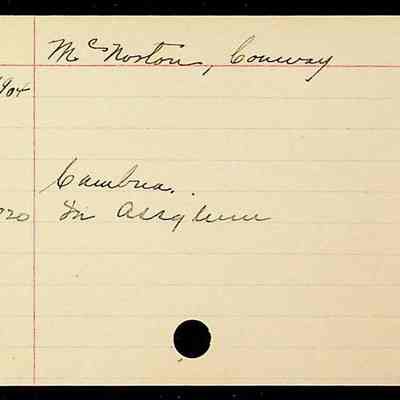 McNorton, Conway
904
Cambria.
920 In Assylum